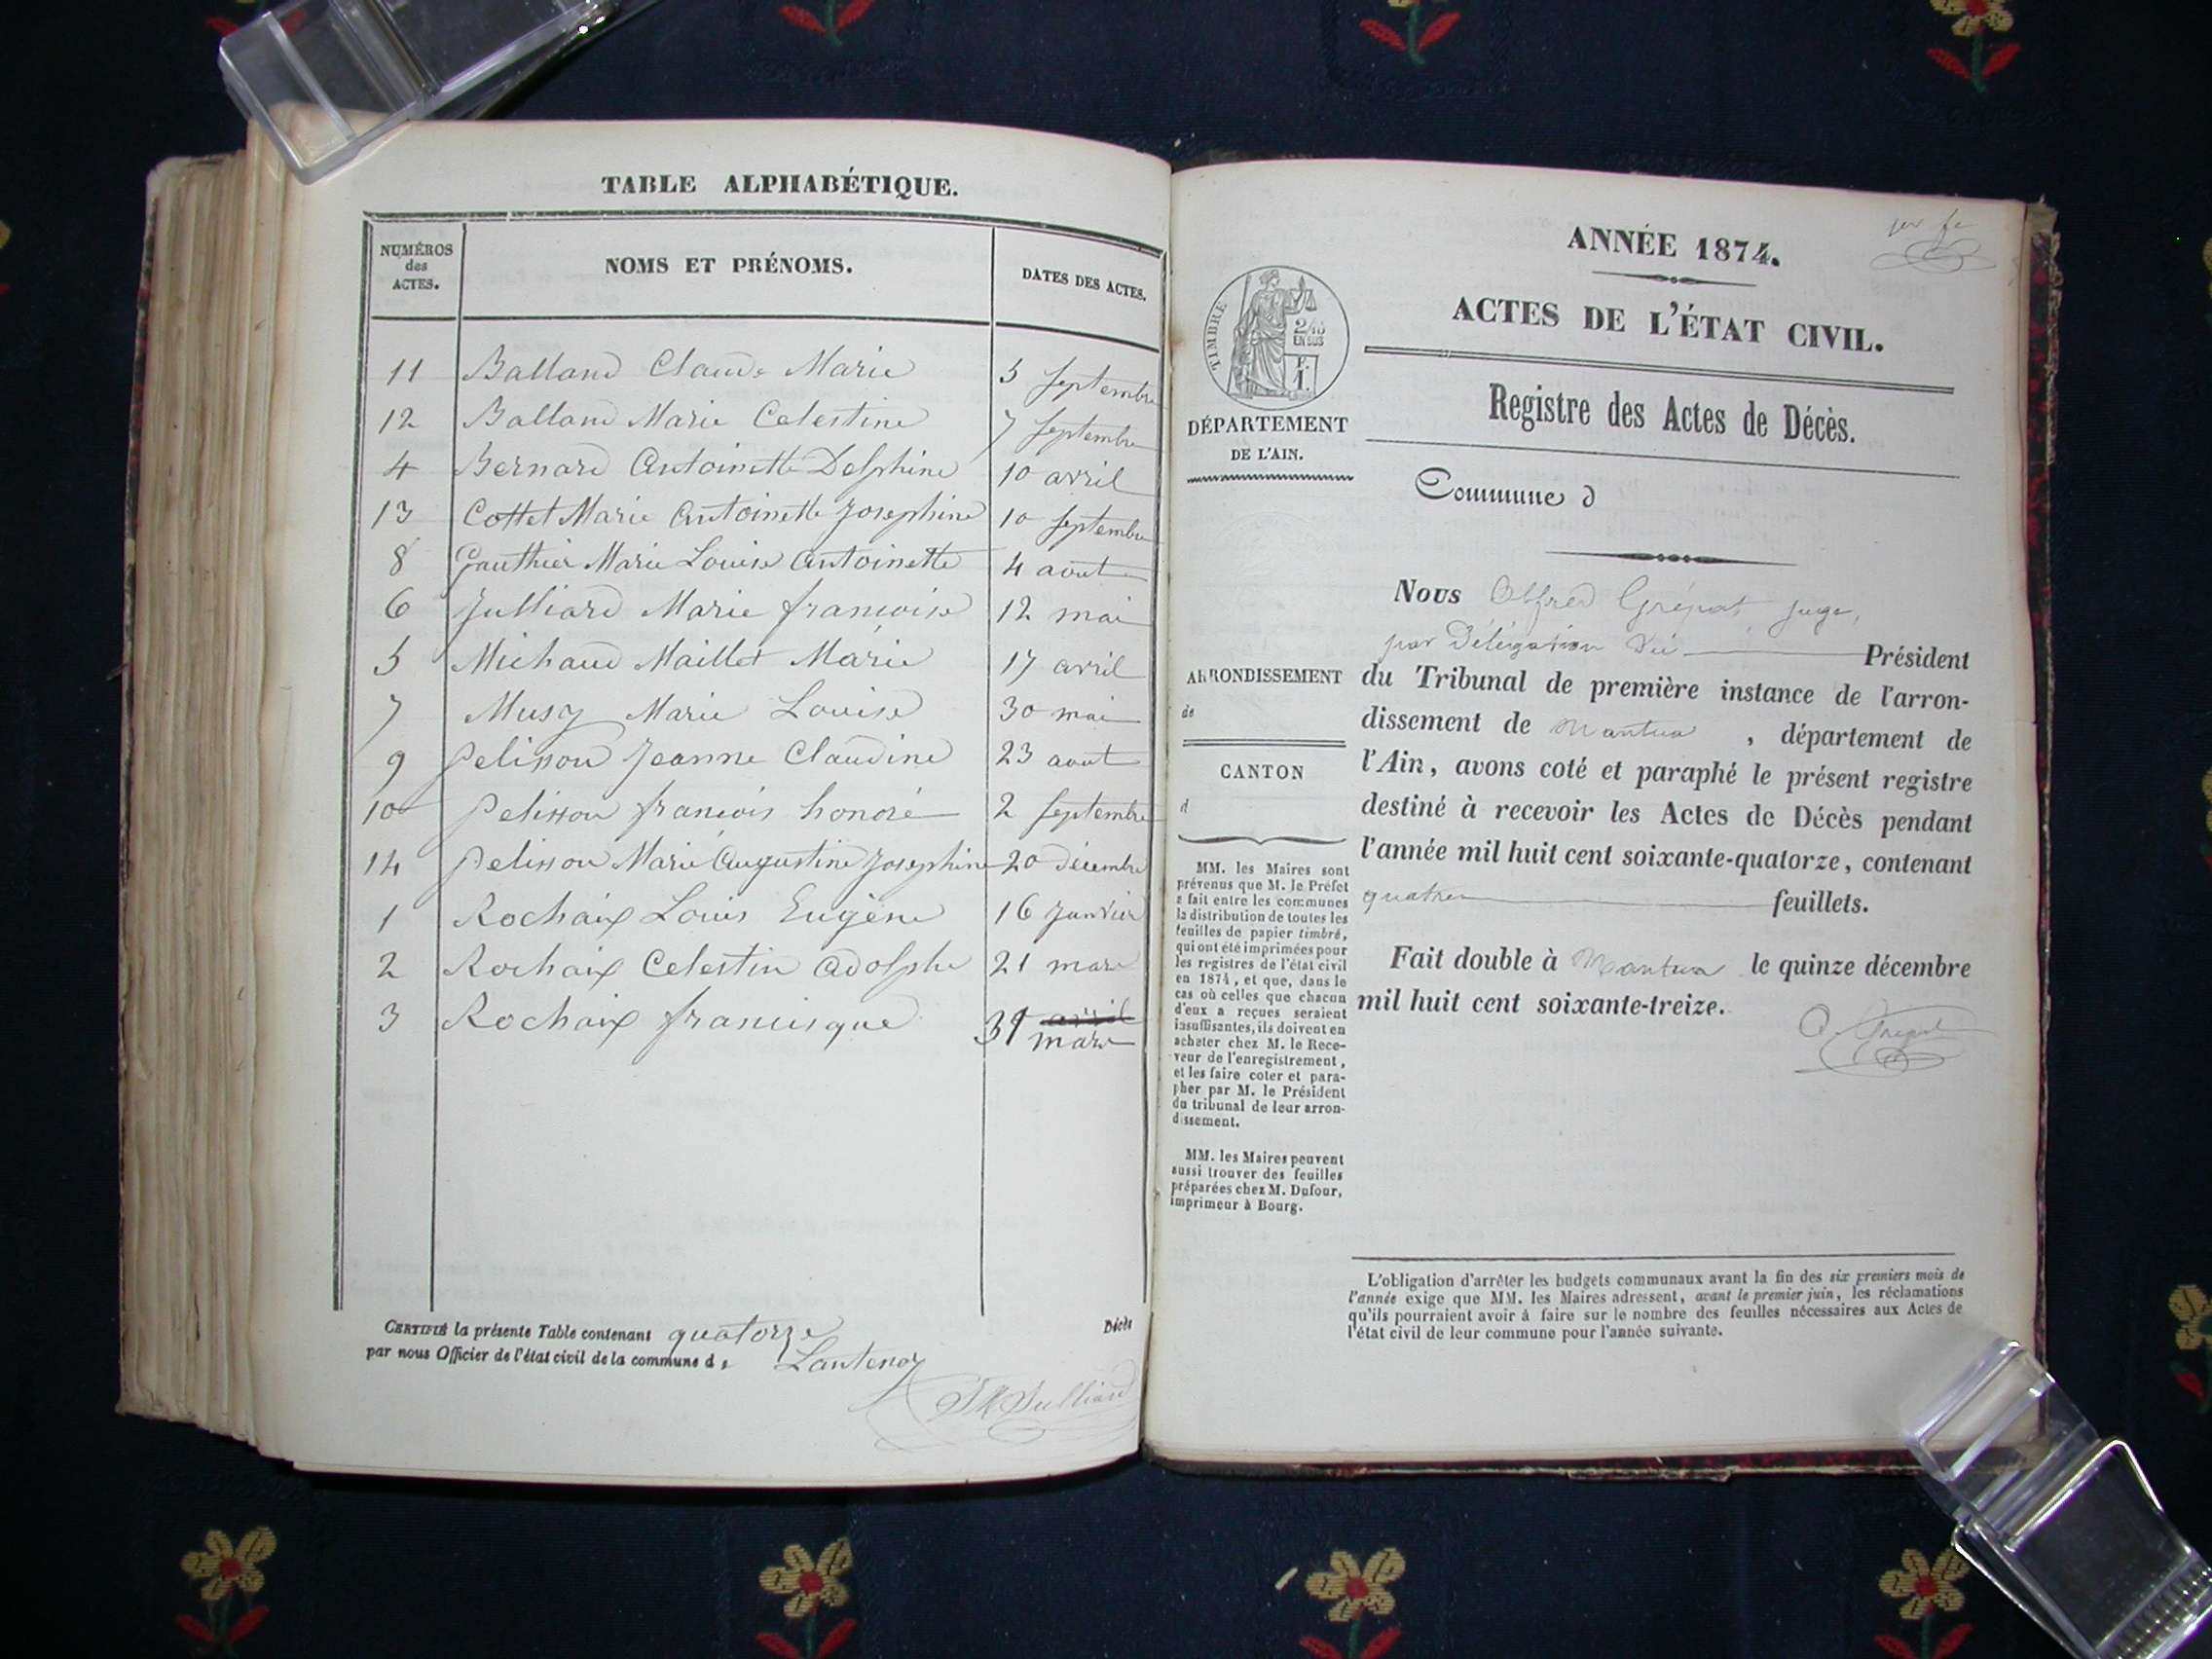 TABLE ALPHABÉTIQUE.
NUMÉROS
des
ACTES.
NOMS ET PRÉNOMS.
DATES DES ACTES.
11 Balland Claude Marie 5 Septembre
12 Balland Marie Celestine 7 Septembre
4 Bernard Antoinette Delphine 10 avril
13 Cottet Marie Antoinette Josephine 10 Septembre
8 Gauthier Marie Louise Antoinette 4 aout
6 Julliard Marie françoise 12 mai
5 Michaud Maillet Marie 17 avril
7 Musy Marie Louise 30 mai
9 Pelisson Jeanne Claudine 23 aout
10 Pelisson françois honoré 2 Septembre
14 Pelisson Marie Augustine Josephine 20 décembre
1 Rochaix Louis Eugène 16 Janvier
2 Rochaix Celestin Adolphe 21 mars
3 Rochaix francisque 31 avril
mars
CERTIFIÉ la présente Table contenant quatorze Décès
par nous Officier de l'état civil de la commune de Lantenay
Julliard
ANNÉE 1874.
ACTES DE L'ÉTAT CIVIL.
TIMBRE
2/10
EN SUS
F.
1.
DÉPARTEMENT
DE L'AIN.
Registre des Actes de Décès.
Commune d
Nous Alfred Grépat Juge,
par Délégation du Président
du Tribunal de première instance de l'arron-
dissement de Mantua , département de
l'Ain, avons coté et paraphé le présent registre
destiné à recevoir les Actes de Décès pendant
l'année mil huit cent soixante-quatorze, contenant
quatre feuillets.
Fait double à Mantua le quinze décembre
mil huit cent soixante-treize.
ARRONDISSEMENT
de
CANTON
d
MM. les Maires sont
prévenus que M. le Préfet
a fait entre les communes
la distribution de toutes les
feuilles de papier timbré,
qui ont été imprimées pour
les registres de l'état civil
en 1874, et que, dans le
cas où celles que chacun
d'eux a reçues seraient
insuffisantes, ils doivent en
acheter chez M. le Rece-
veur de l'enregistrement,
et les faire coter et para-
pher par M. le Président
du tribunal de leur arron-
dissement.
MM. les Maires peuvent
aussi trouver des feuilles
préparées chez M. Dufour,
imprimeur à Bourg.
L'obligation d'arrêter les budgets communaux avant la fin des six premiers mois de
l'année exige que MM. les Maires adressent, avant le premier juin, les réclamations
qu'ils pourraient avoir à faire sur le nombre des feuilles nécessaires aux Actes de
l'état civil de leur commune pour l'année suivante.